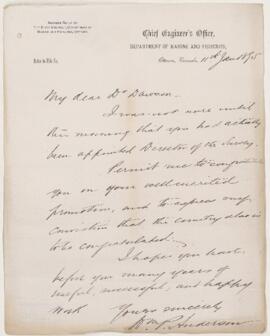 Chief Engineer's Office,
DEPARTMENT OF MARINE AND FISHERIES,
Ottawa, Canada, 11th Jany 1895
My dear Dr Dawson,
I was not sure until
this morning that you had actually
been appointed Director of the Survey.
Permit me to congratulate
you on your well merited
promotion, and to express my
conviction that the country also is
to be congratulated.
I hope you have
before you many years of
useful, successful, and happy
work
Yours sincerely
Wm P. Anderson